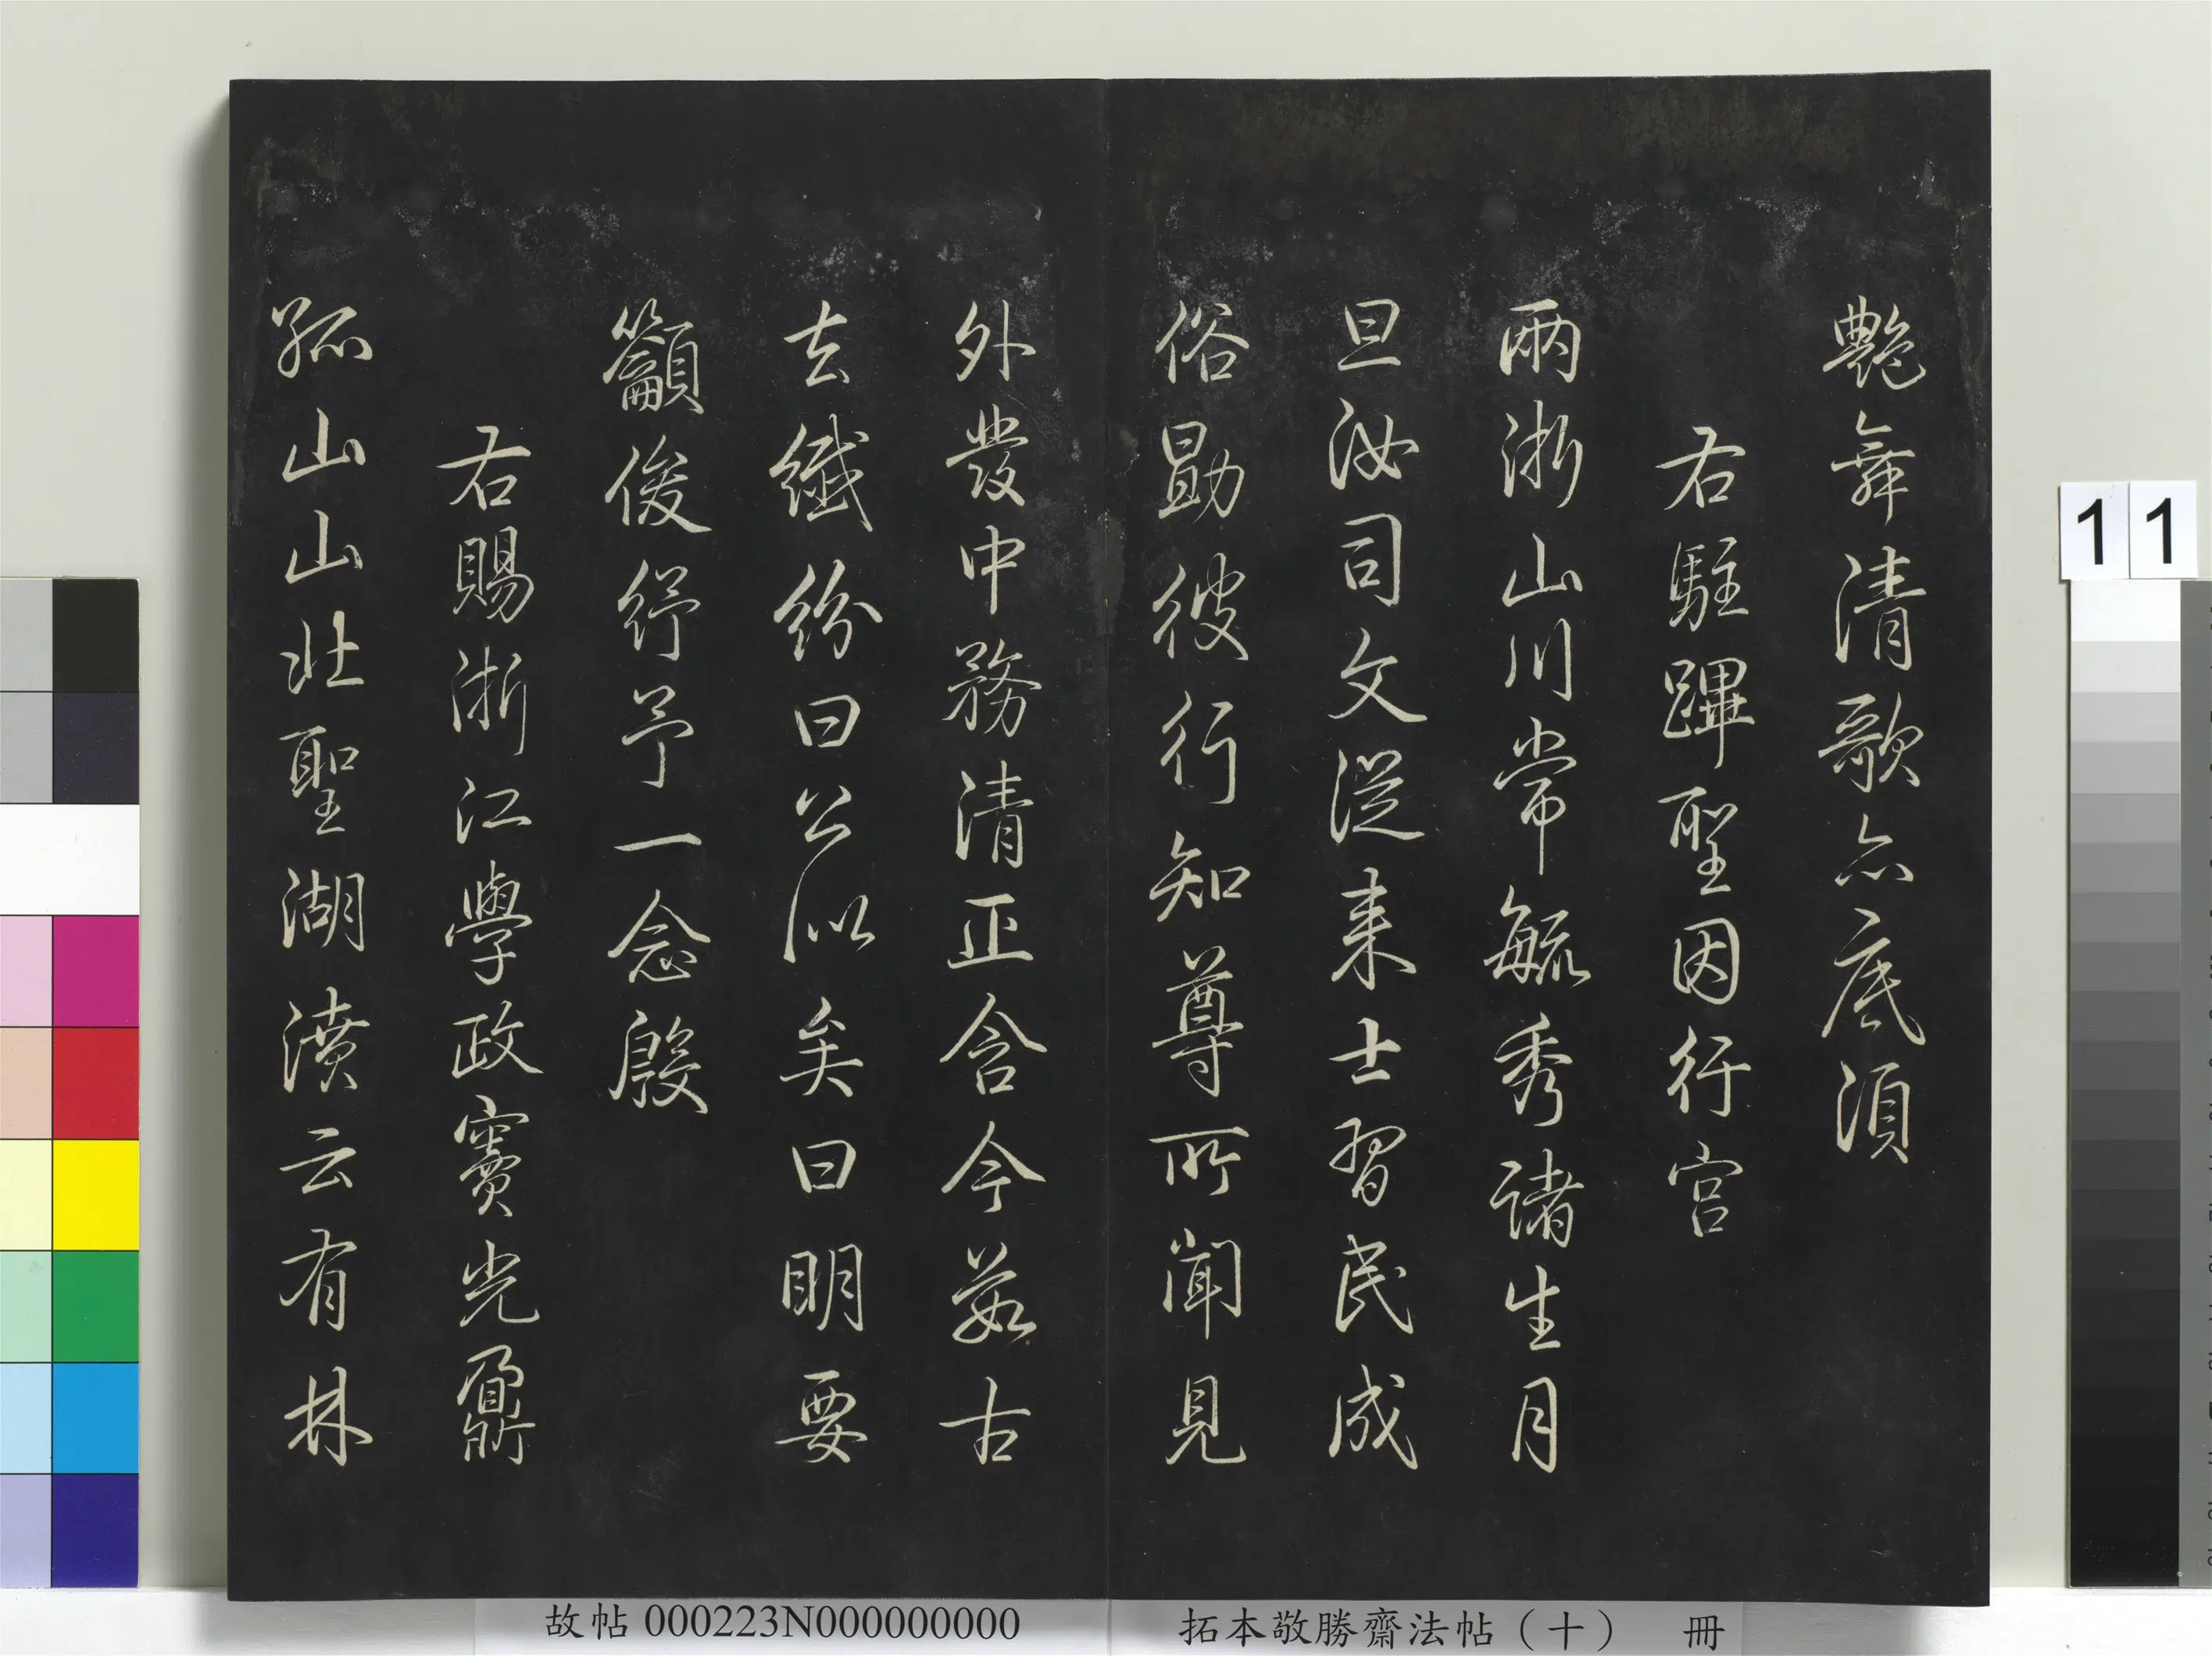 艷舞清歌亦底須
右駐蹕聖因行宮
兩浙山川常毓秀諸生月
旦汝司文從来士習民成
俗勖彼行知尊所聞見
外發中務清正含今茹古
去纖紛曰公似矣曰明要
籲俊紓予一念殷
右賜浙江學政竇光鼐
孤山山北聖湖濆云有林
11
故帖 000223N000000000
拓本敬勝齋法帖（十） 冊